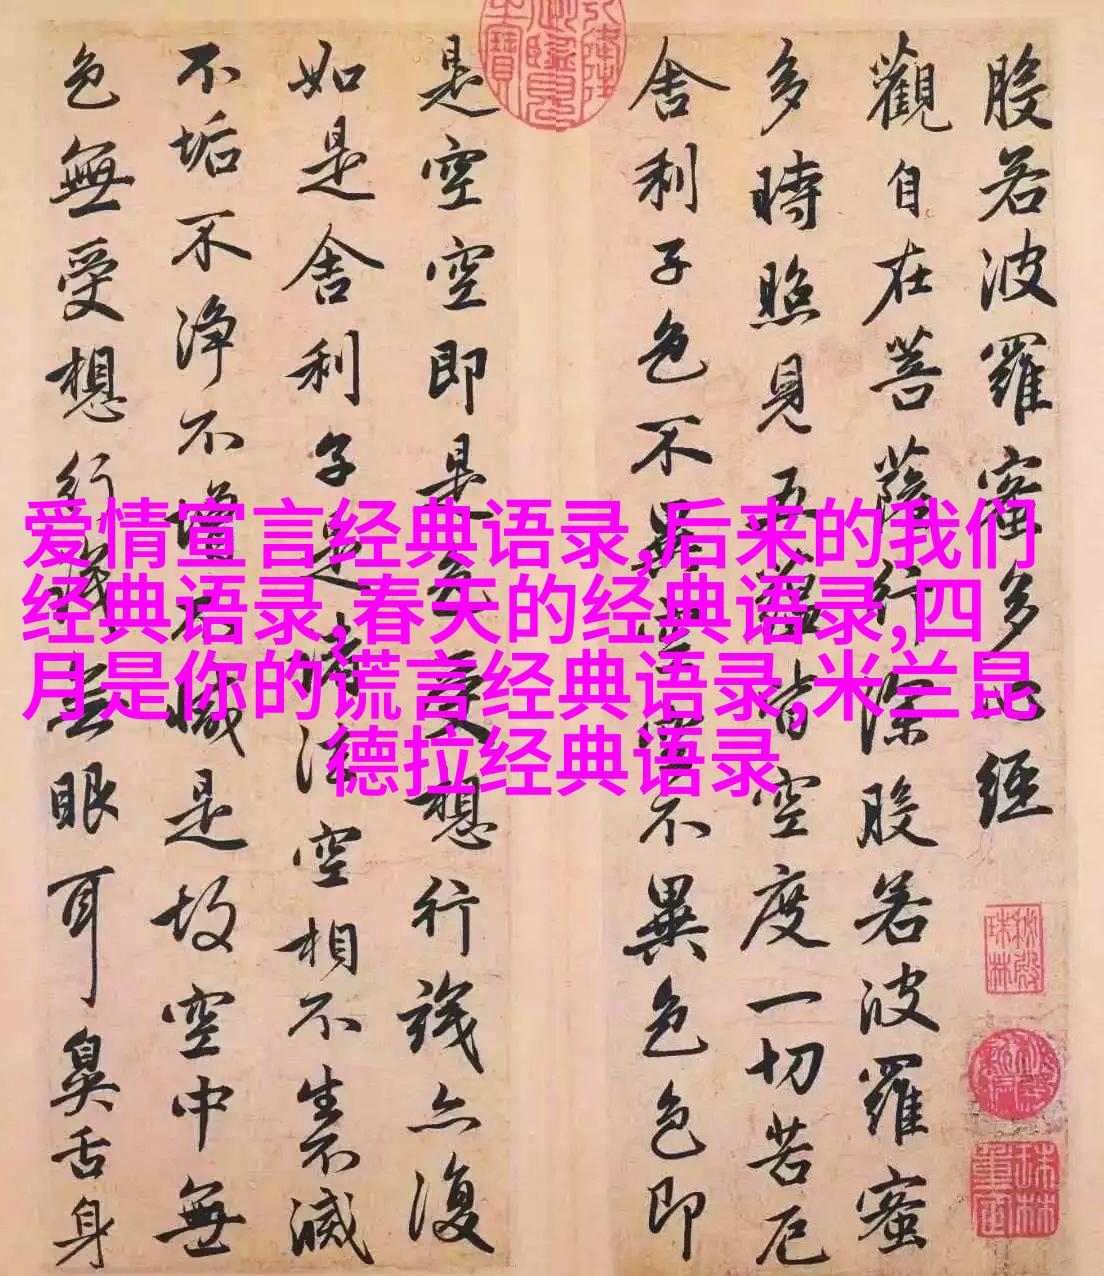 般若波羅蜜多心經
觀自在菩薩行深般若波羅蜜
多時照見五蘊皆空度一切苦厄
舍利子色不異空空不異色色即
是空空即是色受想行識亦復
如是舍利子是諸法空相不生不滅
不垢不净不增不減是故空中無
色無受想行識無眼耳鼻舌身
爱情宣言经典语录,后来的我们
经典语录,春天的经典语录,四
月是你的谎言经典语录,米兰昆
德拉经典语录